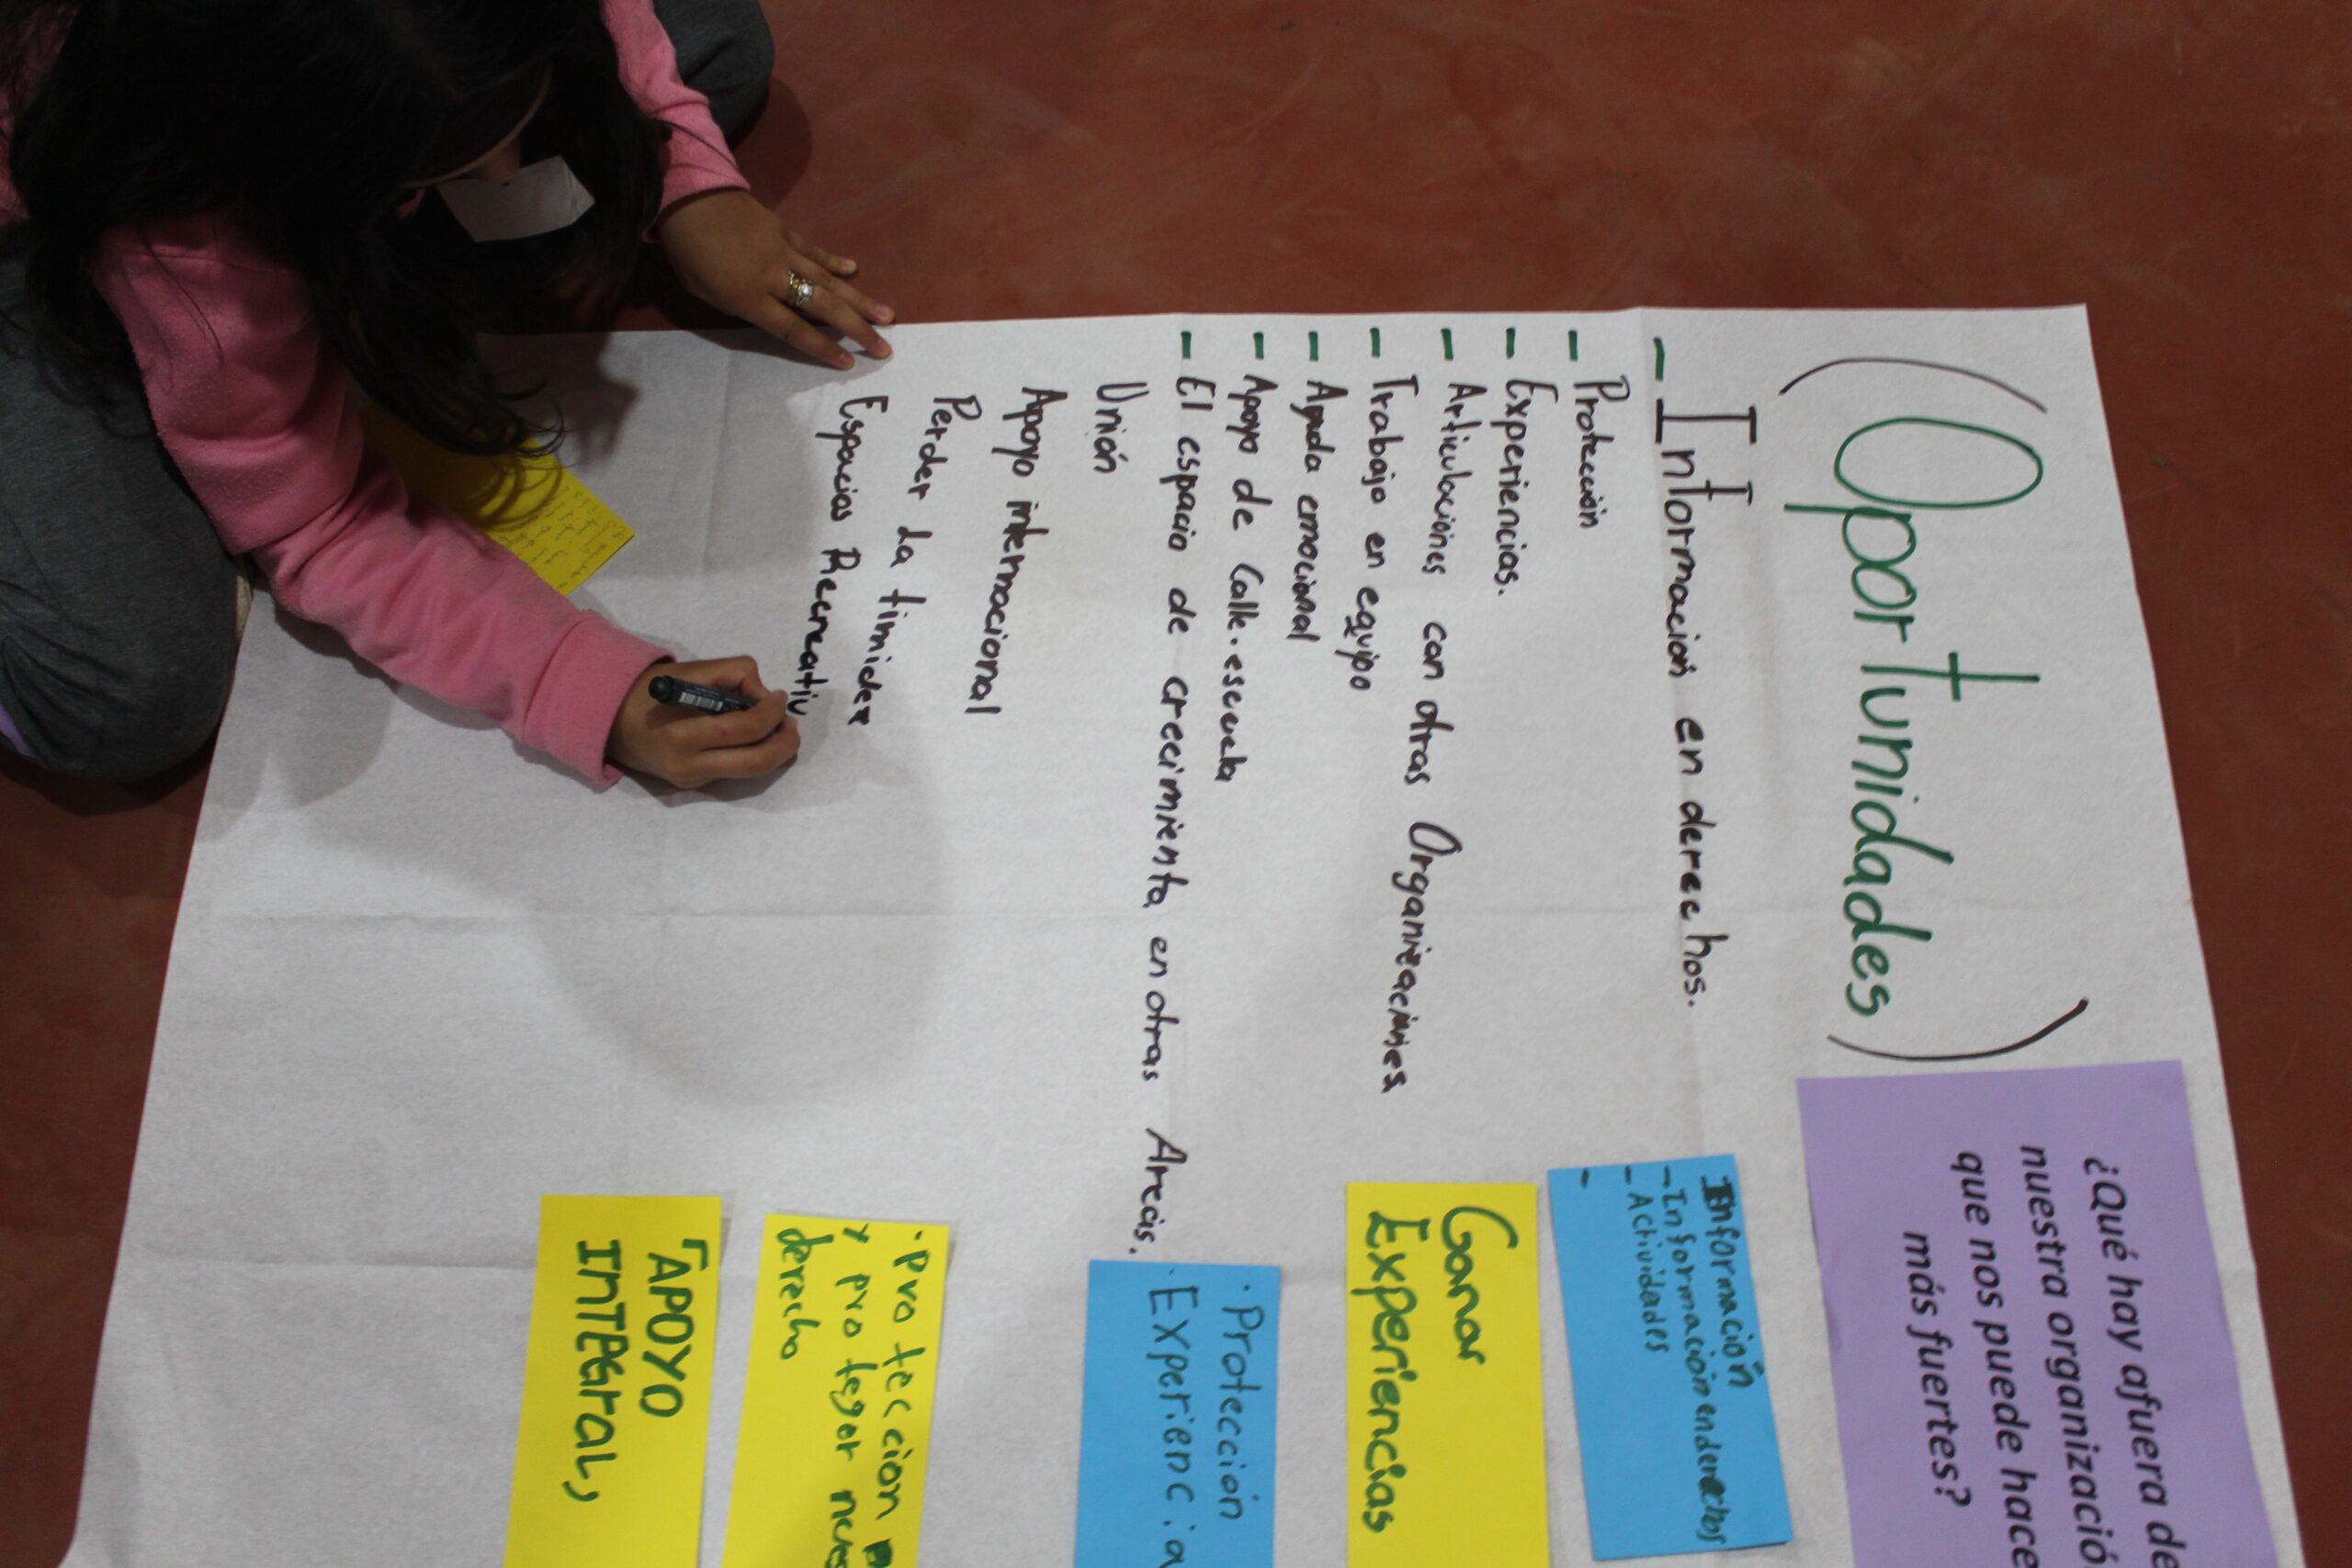 (Oportunidades)
- Información en derechos.
- Protección
- Experiencias.
- Articulaciones con otras Organizaciones
- Trabajo en equipo
- Ayuda emocional
- Apoyo de Calle.escuela
- El espacio de crecimiento en otras Areas.
Unión
Apoyo internacional
Perder la timidez
Espacios Recreativ
¿Qué hay afuera de
nuestra organizació
que nos puede hace
más fuertes?
Información
- Información en derechos
- Actividades
-
Ganar
Experiencias
· Protección
· Experiencia
· Proteccion
y proteger nues
derecho
"APOYO
INTEGRAL,